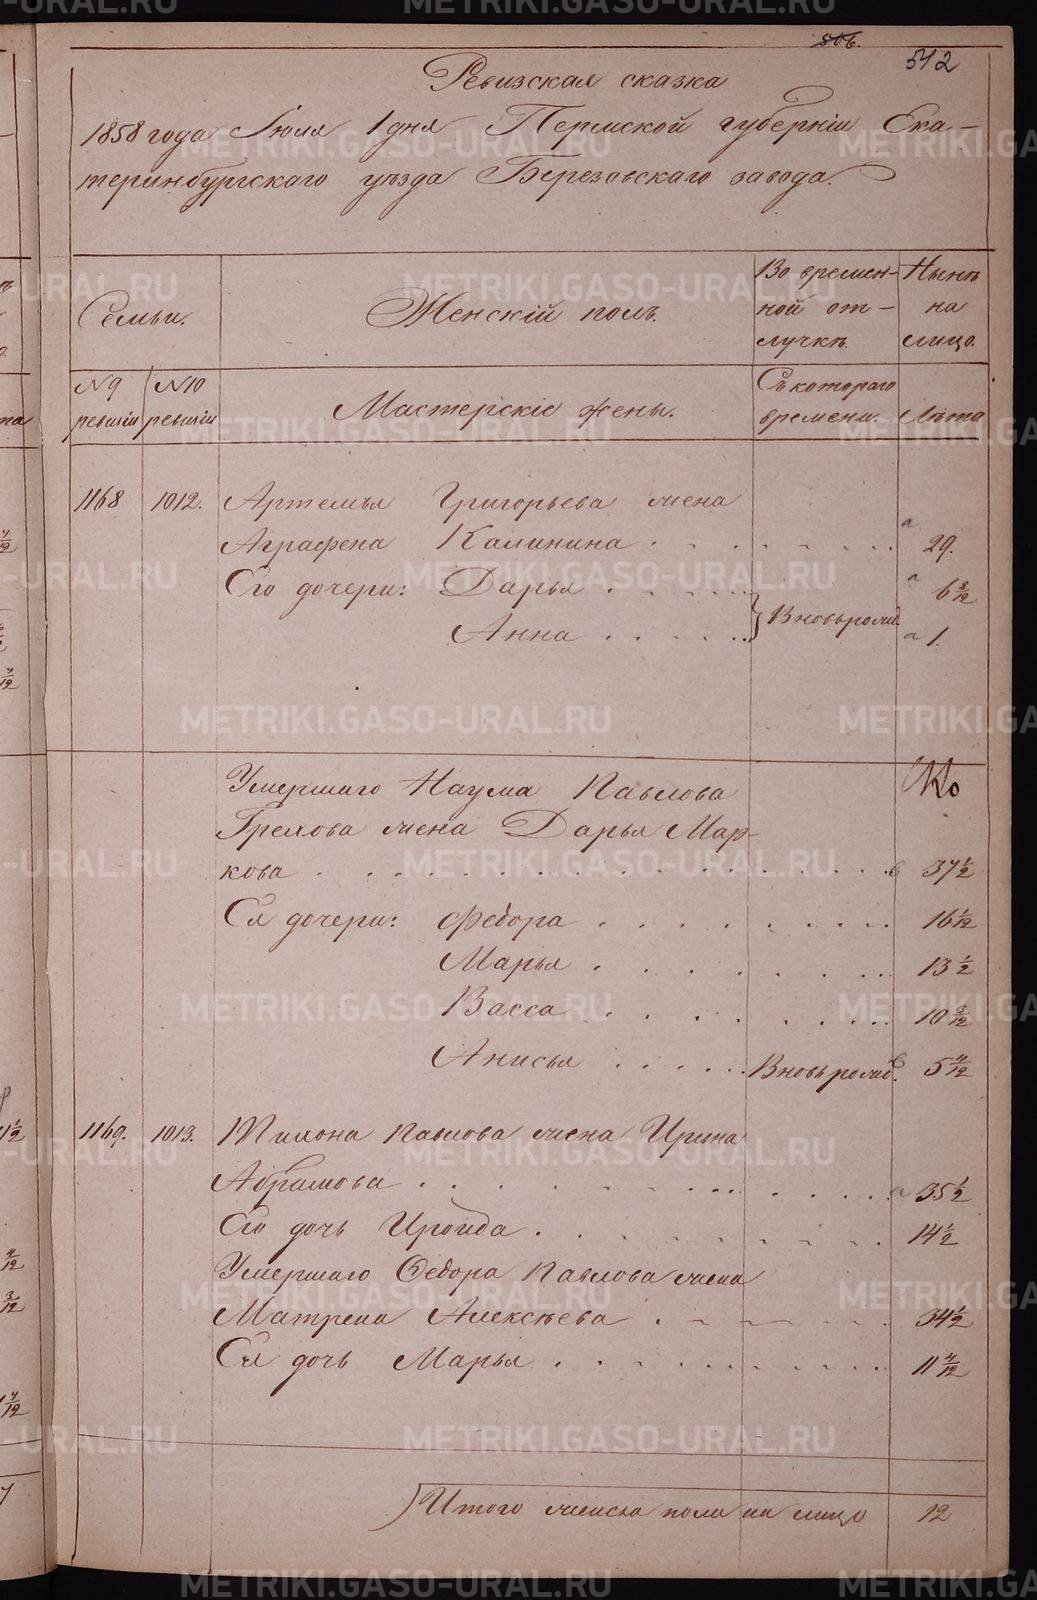 506.
542
Ревизская сказка
1858 года Июля 1 дня Пермской губерніи Ека-
теринбургскаго уѣзда Березовскаго завода.
Семьи.
Женскій полъ.
Во времен-
ной от-
лучкѣ.
Нынѣ
на
лицо.
№ 9
ревизіи
№ 10
ревизіи
Мастерскіе жены.
Съ котораго
времени.
Лѣта
1168 1012. Артемья Григорьева жена
Аграфена Калинина 29.
Его дочери: Дарья 6
Анна Вновь рожд. 1.
Умершаго Наума Павлова
Грехова жена Дарья Мар-
кова 37 1/2
Ея дочери: Федора 16 1/12
Марья 13 1/2
Васса 10
Анисья Вновь рожд. 5
1169. 1013. Тихона Павлова жена Ирина
Абрамова 35 1/2
Его дочь Ироида 14 1/2
Умершаго Федора Павлова жена
Матрена Алексѣева 34 1/2
Ея дочь Марья 11
Итого женска пола на лицо 12
METRIKI.GASO-URAL.RU